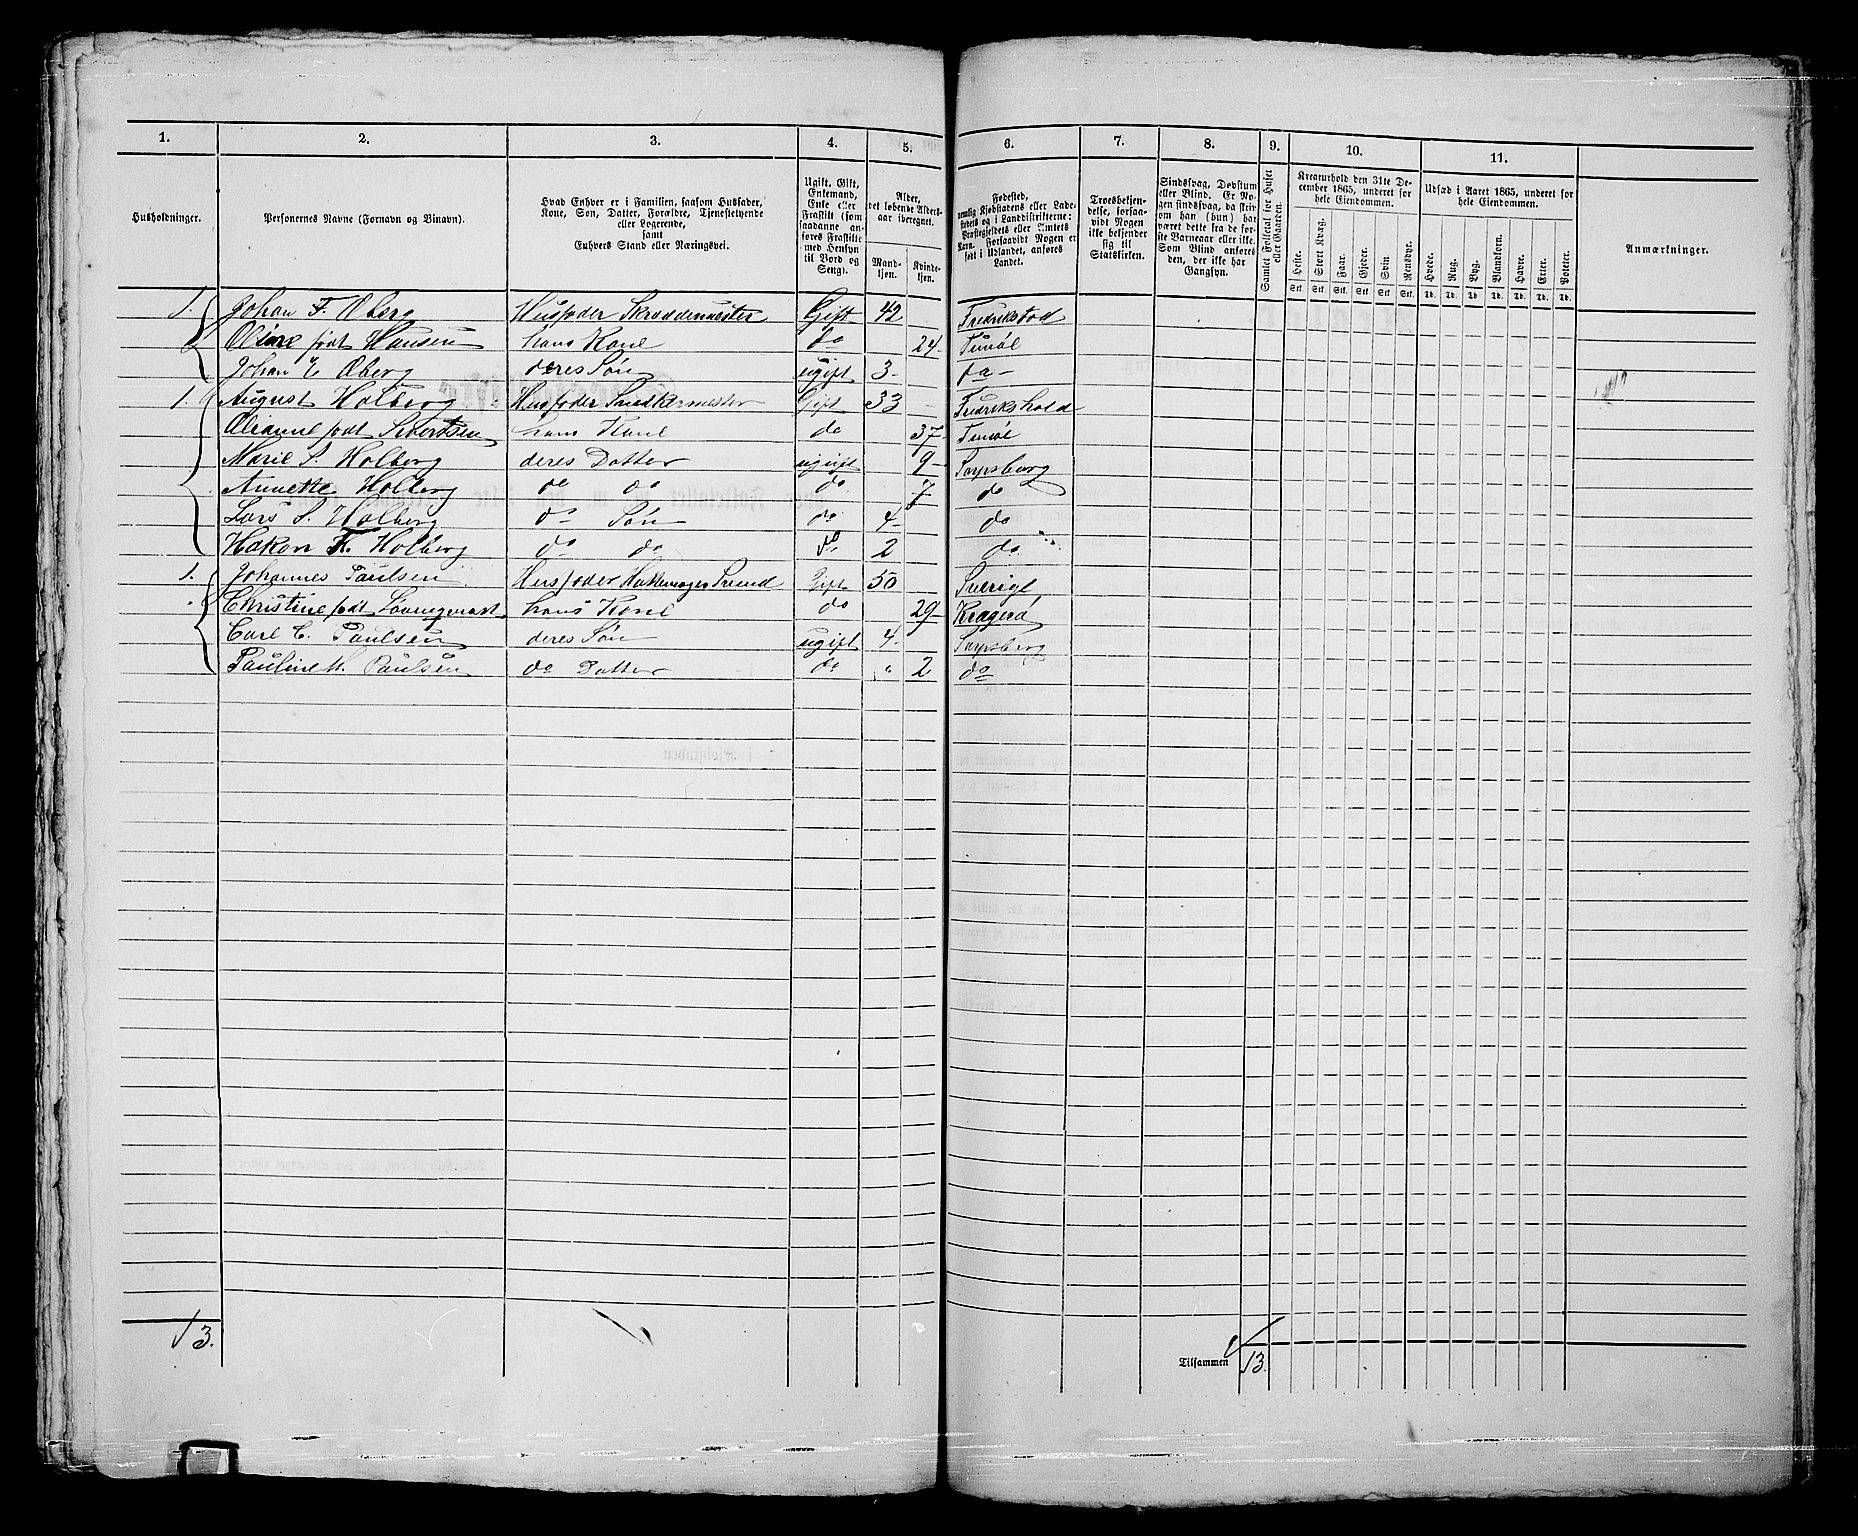 1. 2. 3. 4. 5. 6. 7. 8. 9. 10. 11.
Husholdninger.
Personernes Navne (Fornavn og Binavn).
Hvad Enhver er i Familien, saasom Husfader, Kone, Søn, Datter, Forældre, Tjenestetyende eller Logerende, samt Enhvers Stand eller Næringsvei.
Ugift, Gift, Enkemand, Enke eller Fraskilt (som saadanne anføres Fraskilte med Hensyn til Bord og Seng).
Alder, det løbende Aldersaar iberegnet.
Mandkjøn. Kvindekjøn.
Fødested, nemlig Kjøbstadens eller Ladestedets og i Landdistrikterne: Præstegjeldets eller Amtets Navn. Forsaavidt Nogen er født i Udlandet, anføres Landet.
Troesbekjendelse, forsaavidt Nogen ikke bekjender sig til Statskirken.
Sindssvag, Døvstum eller Blind. Er Nogen sindssvag, da skrives om han (hun) har været dette fra de første Barneaar eller ikke. Som Blind anføres den, der ikke har Gangsyn.
Samlet Folketal for Huset eller Gaarden.
Kreaturhold den 31te December 1865, underet for hele Eiendommen.
Heste. Stort Kvæg. Faar. Gjeder. Svin Rensdyr.
Stk. Stk. Stk. Stk. Stk. Stk.
Udsæd i Aaret 1865, underet for hele Eiendommen.
Hvede. Rug. Byg. Blandkorn. Havre. Erter. Poteter.
Td. Td. Td. Td. Td. Td. Td.
Anmærkninger.
1. Johan F. Øberg Husfader Skræddermester Gift 42 Fredrikstad
Oline født Hansen hans Kone do 24 Tunøe
Johan E Øberg deres Søn ugift 3 do
1. August Holberg Husfader Snedkermester Gift 33 Fredrikshald
født hans Kone do 37 Tunøe
Marie S. Holberg deres Datter ugift 9 Sarpsborg
Annette Holberg do do do 7 do
Lars S. Holberg do Søn do 4 do
Hakon Holberg do do do 2 do
1. Johannes Paulsen Husfader Gift 50 Sverige
Christine født hans Kone do 29 Kragerø
Carl C. Paulsen deres Søn ugift 4 Sarpsborg
Pauline M. Paulsen do Datter do " 2 do
13.
Tilsammen 13.